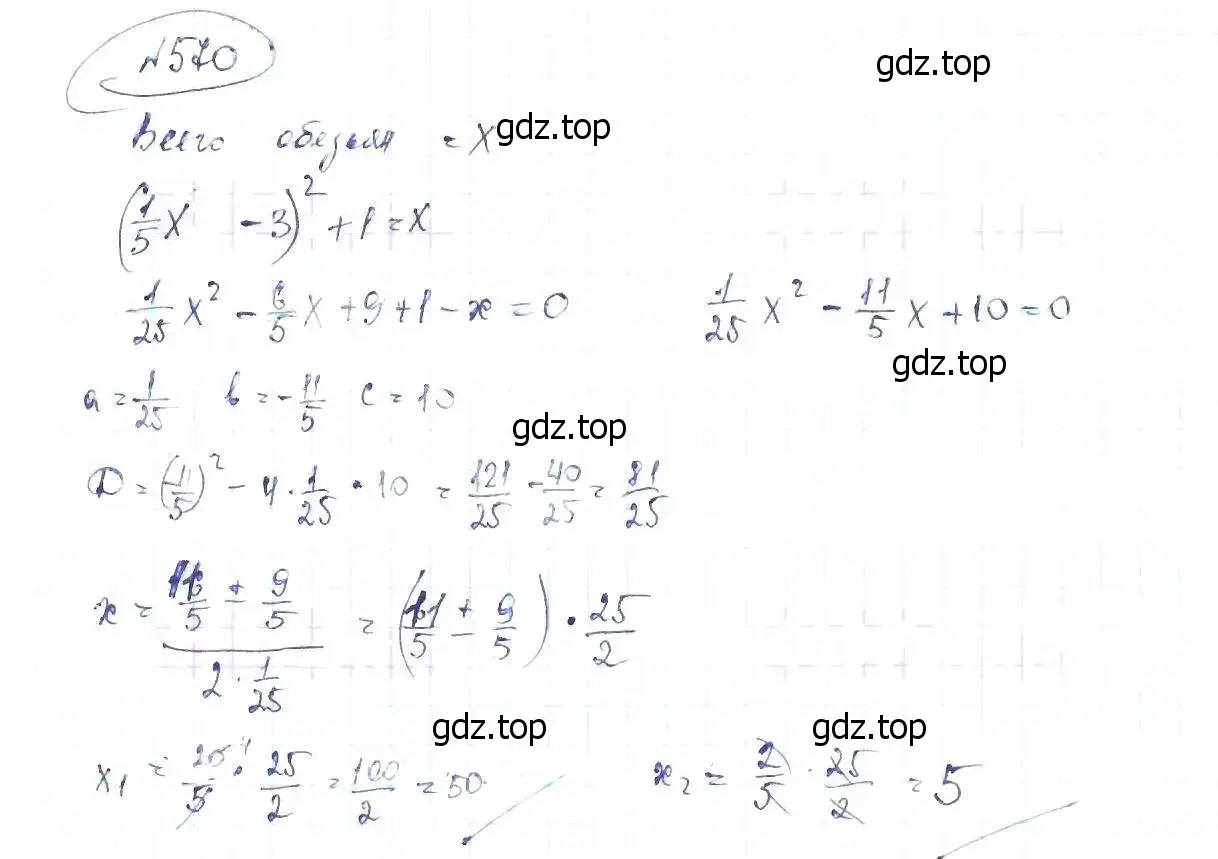 №570
gdz.top
Всего обезьян = X gdz.top
(1/5 X - 3)² + 1 = X
1/25 X² - 6/5 X + 9 + 1 - x = 0    1/25 X² - 11/5 X + 10 = 0
gdz.top
a = 1/25  b = - 11/5  c = 10
gdz.top
D = (11/5)² - 4 · 1/25 · 10 = 121/25 - 40/25 = 81/25
x = (11/5 ± 9/5) / (2 · 1/25) = (11/5 ± 9/5) · 25/2
gdz.top gdz.top
x₁ = 20/5 · 25/2 = 100/2 = 50    x₂ = 2/5 · 25/2 = 5